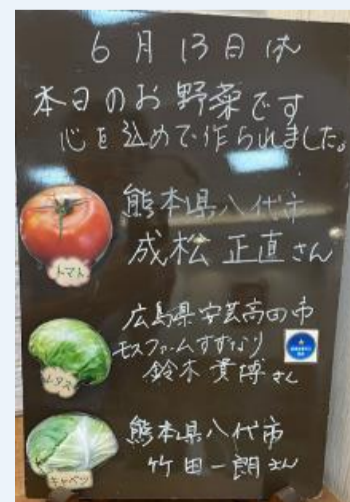 6月13日㈭
本日のお野菜です
心を込めて作られました。
熊本県八代市
成松 正直さん
トマト
広島県安芸高田市
モスファームすずなり
鈴木 貴博さん
レタス
熊本県八代市
竹田一朗さん
キャベツ